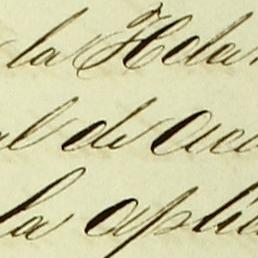 la Hda
al de Acu
la aplic